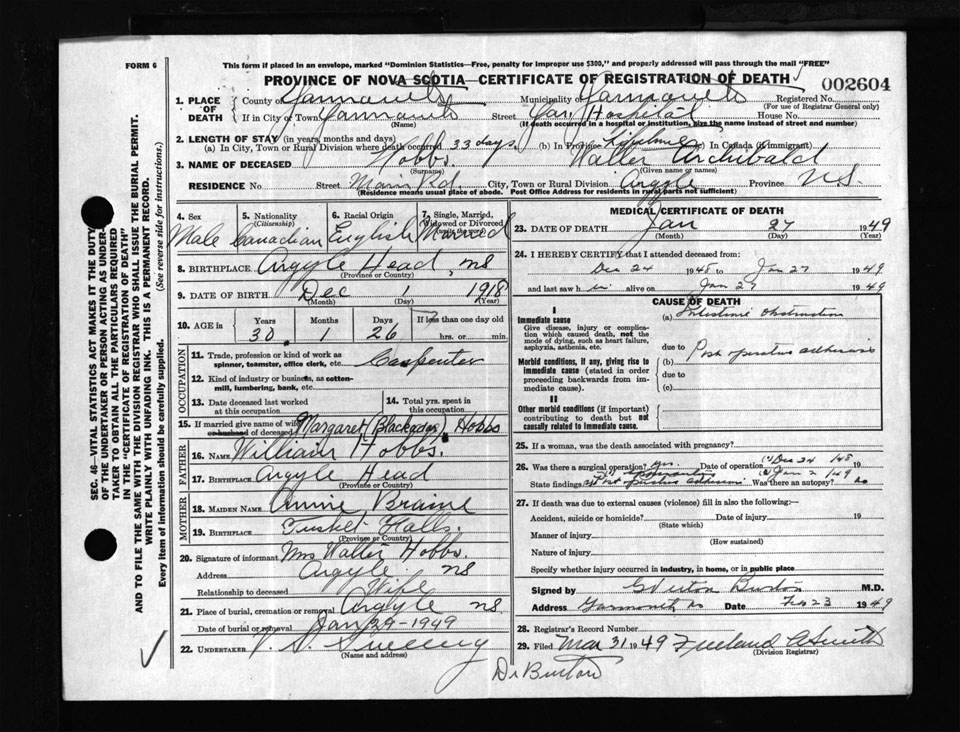 FORM 6
This form if placed in an envelope, marked "Dominion Statistics—Free, penalty for improper use $300," and properly addressed will pass through the mail "FREE"
PROVINCE OF NOVA SCOTIA—CERTIFICATE OF REGISTRATION OF DEATH
002604
1. PLACE OF DEATH
County of Yarmouth Municipality of Yarmouth Registered No.
(For use of Registrar General only)
If in City or Town Yarmouth Street Yar. Hospital House No.
(Name) (If death occurred in a hospital or institution, give the name instead of street and number)
2. LENGTH OF STAY (in years, months and days)
(a) In City, Town or Rural Division where death occurred 33 days (b) In Province Lifetime (c) In Canada (if immigrant)
3. NAME OF DECEASED Hobbs Walter Archibald
(Surname) (Given name or names)
RESIDENCE No Street Main Rd. City, Town or Rural Division Argyle Province N.S.
(Residence means usual place of abode. Post Office Address for residents in rural parts not sufficient)
4. Sex 5. Nationality (Citizenship) 6. Racial Origin 7. Single, Married, Widowed or Divorced
Male Canadian English Married
8. BIRTHPLACE Argyle Head, NS
(Province or Country)
9. DATE OF BIRTH Dec 1 1918
(Month) (Day) (Year)
10. AGE in Years Months Days If less than one day old
30 1 26 hrs. or min.
OCCUPATION
11. Trade, profession or kind of work as spinner, teamster, office clerk, etc. Carpenter
12. Kind of industry or business, as cotton-mill, lumbering, bank, etc.
13. Date deceased last worked at this occupation
14. Total yrs. spent in this occupation
15. If married give name of wife or husband of deceased Margaret Hobbs
FATHER
16. Name William Hobbs.
17. Birthplace Argyle Head
(Province or Country)
MOTHER
18. Maiden Name Annie Braine
19. Birthplace Tusket Falls.
(Province or Country)
20. Signature of informant Mrs Walter Hobbs.
Address Argyle NS
Relationship to deceased Wife
21. Place of burial, cremation or removal Argyle NS
Date of burial or removal Jan 29-1949
22. UNDERTAKER V. S. Sweeny
(Name and address)
MEDICAL CERTIFICATE OF DEATH
23. DATE OF DEATH Jan 27 1949
(Month) (Day) (Year)
24. I HEREBY CERTIFY that I attended deceased from:
Dec 24 1948 to Jan 27 1949
and last saw him alive on Jan 27 1949
CAUSE OF DEATH
I
Immediate cause (a) Intestinal obstruction
Give disease, injury or complication which caused death, not the mode of dying, such as heart failure, asphyxia, asthenia, etc.
due to
Morbid conditions, if any, giving rise to immediate cause (stated in order proceeding backwards from immediate cause).
(b) Post operative adhesions
due to
(c)
II
Other morbid conditions (if important) contributing to death but not causally related to immediate cause.
25. If a woman, was the death associated with pregnancy?
26. Was there a surgical operation? Yes. Date of operation (1) Dec 24 1948
(2) Jan 2 1949
State findings Post operative adhesions Was there an autopsy? No
27. If death was due to external causes (violence) fill in also the following:—
Accident, suicide or homicide? Date of injury 19
(State which)
Manner of injury
(How sustained)
Nature of injury
Specify whether injury occurred in industry, in home, or in public place
Signed by Burton M.D.
Address Yarmouth NS Date Feb 23 1949
28. Registrar's Record Number
29. Filed Mar 31 1949 Freeland A Smith
(Division Registrar)
Dr Burton
SEC. 46—VITAL STATISTICS ACT MAKES IT THE DUTY
OF THE UNDERTAKER OR PERSON ACTING AS UNDERTAKER TO OBTAIN ALL THE PARTICULARS REQUIRED
IN THE "CERTIFICATE OF REGISTRATION OF DEATH"
AND TO FILE THE SAME WITH THE DIVISION REGISTRAR WHO SHALL ISSUE THE BURIAL PERMIT.
WRITE PLAINLY WITH UNFADING INK. THIS IS A PERMANENT RECORD.
Every item of information should be carefully supplied. (See reverse side for instructions.)